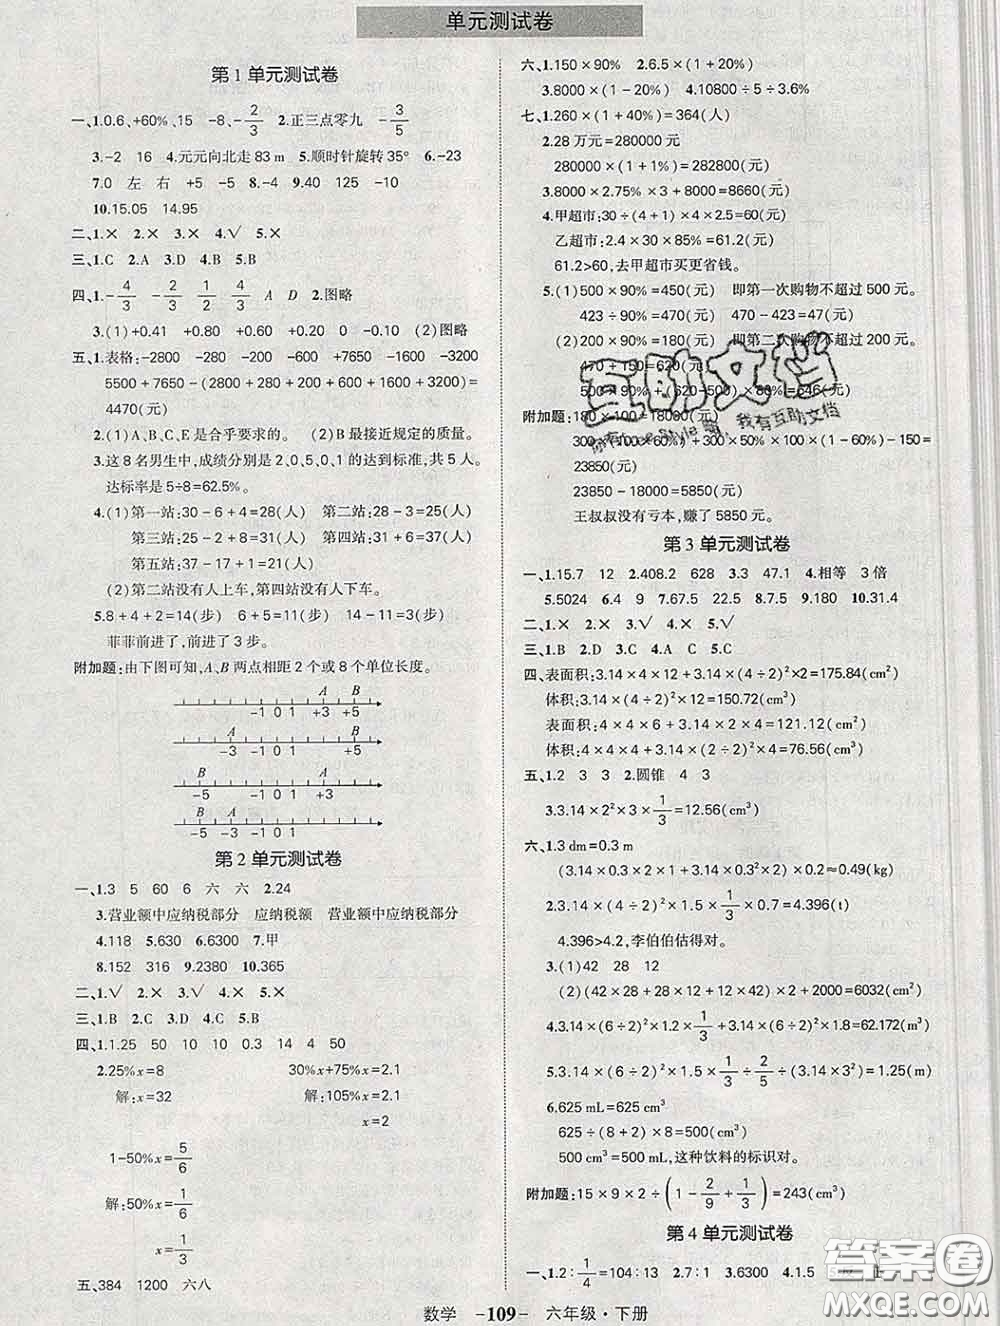 单元测试卷
第1单元测试卷
一、1.0.6、+60%、15 -8、-2/3 2.正三点零九 -3/5
3.-2 16 4.元元向北走83 m 5.顺时针旋转35° 6.-23
7.0 左 右 +5 -5 8.-4 9.40 125 -10
10.15.05 14.95
二、1.× 2.× 3.× 4.√ 5.×
三、1.C 2.A 3.D 4.B 5.B
四、1.-4/3 -2/3 1/2 4/3 A D 2.图略
3.(1)+0.41 +0.80 +0.60 0 -0.10 (2)图略
五、1.表格:-2800 -280 -200 +7650 -1600 -3200
5500+7650-(2800+280+200+600+1600+3200)=
4470(元)
2.(1)A、B、C、E是合乎要求的。 (2)B最接近规定的质量。
3.这8名男生中,成绩分别是2、0、5、0、1的达到标准,共5人。
达标率是5÷8=62.5%。
4.(1)第一站:30-6+4=28(人) 第二站:28-3=25(人)
第三站:25-2+8=31(人) 第四站:31+6=37(人)
第五站:37-17+1=21(人)
(2)第二站没有人上车,第四站没有人下车。
5.8+4+2=14(步) 6+5=11(步) 14-11=3(步)
菲菲前进了,前进了3步。
附加题:由下图可知,A、B两点相距2个或8个单位长度。
A B
-1 0 1 +3 +5
A B
-3 -1 0 1 +5
B A
-5 -1 0 1 +3
B A
-5 -3 -1 0 1
第2单元测试卷
一、1.3 5 60 6 六 六 2.24
3.营业额中应纳税部分 应纳税额 营业额中应纳税部分
4.118 5.630 6.6300 7.甲
8.152 316 9.2380 10.365
二、1.√ 2.× 3.× 4.√ 5.×
三、1.B 2.C 3.D 4.C 5.B
四、1.1.25 50 10 10 0.3 14 4 50
2.25%x=8 30%x+75%x=2.1
解:x=32 解:105%x=2.1
x=2
1-50%x=5/6
解:50%x=1/6
x=1/3
五、384 1200 六八
六、1.150×90% 2.6.5×(1+20%)
3.8000×(1-20%) 4.10800÷5÷3.6%
七、1.260×(1+40%)=364(人)
2.28万元=280000元
280000×(1+1%)=282800(元)
3.8000×2.75%×3+8000=8660(元)
4.甲超市:30÷(4+1)×4×2.5=60(元)
乙超市:2.4×30×85%=61.2(元)
61.2>60,去甲超市买更省钱。
5.(1)500×90%=450(元) 即第一次购物不超过500元。
423÷90%=470(元) 470-423=47(元)
(2)200×90%=180(元) 即第二次购物不超过200元。
470+150=620(元)
500×90%+(620-500)×80%=546(元)
附加题:180×100=18000(元)
23850(元)
23850-18000=5850(元)
王叔叔没有亏本,赚了5850元。
第3单元测试卷
一、1.15.7 12 2.408.2 628 3.3 47.1 4.相等 3倍
5.5024 6.4 9 7.67.5 22.5 8.7.5 9.180 10.31.4
二、1.× 2.× 3.× 4.√ 5.√
三、1.B 2.D 3.C 4.A 5.C
四、表面积:3.14×4×12+3.14×(4÷2)²×2=175.84(cm²)
体积:3.14×(4÷2)²×12=150.72(cm³)
表面积:4×4×6+3.14×2×4=121.12(cm²)
体积:4×4×4+3.14×(2÷2)²×4=76.56(cm³)
五、1.2 3 3 2.圆锥 4 3
3.3.14×2²×3×1/3=12.56(cm³)
六、1.3 dm=0.3 m
(3.14×0.3×2×1+3.14×0.3²×2)×0.2≈0.49(kg)
2.3.14×(6÷2)²×2/3×1/3×0.7=4.396(t)
4.396>4.2,李伯伯估得对。
3.(1)42 28 12
(2)(42×28+28×12+12×42)×2+2000=6032(cm²)
4.3.14×(6÷2)²×1.5×1/3+3.14×(6÷2)²×1.8=62.172(m³)
5.3.14×(6÷2)²×1.5×1/3÷2/5÷(3.14×3²)=1.25(m)
6.625 mL=625 cm³
625÷(8+2)×8=500(cm³)
500 cm³=500 mL,这种饮料的标识对。
附加题:15×9×2÷(1-2/9+1/3)=243(cm³)
第4单元测试卷
一、1.2:1/4=104:13 2.7:1 3.6300 4.1.5
数学 -109- 六年级·下册
互助文档
我有互助文档
答案圈
MXQE.COM